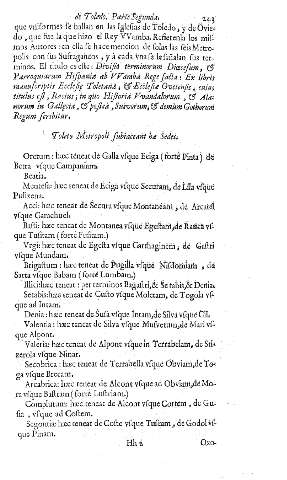 de Toledo. Parte Segunda. 243
que vniformes se hallan en las Iglesias de Toledo, y de Ouie-
do, que fue la que hizo el Rey VVamba. Refierenla los mis-
mos Autores: en ella se haze mencion de solas las seis Metro-
polis con sus Sufraganeos, y à cada vna se le señalan sus ter-
minos. El titulo es este: Diuisio terminorum Diœcesum, &
Parroquiarum Hispaniæ ab VVamba Rege facta: Ex libris
manuscriptis Ecclesiæ Toletanæ, & Ecclesiæ Ouetensis, cuius
titulus est, Itacius; in quo Historia Vvandalorum, & Ala-
norum in Gallecia, & posteà, Sueuorum, & demùm Gothorum
Regum scribitur.
Toleto Metropoli subiaceant hæ Sedes.
Oretum: hæc teneat de Galla vsque Eciga (fortè Pinta) de
Betra vsque Campanium.
Beatia.
Mentesa: hæc teneat de Eciga vsque Securam, de Lila vsque
Pulixena.
Acci: hæc teneat de Secura vsque Montaneam, de Arcatel
vsque Garachuel.
Basti: hæc teneat de Montanea vsque Egestam, de Rauca vs-
que Fusitam (fortè Fustam.)
Vrgi: hæc teneat de Egesta vsque Carthaginem, de Gastri
vsque Mundam.
Bigastrum: hæc teneat de Pugilla vsque Nisdomiam, de
Serra vsque Babam (fortè Lumbam.)
Illici: hæc teneat: per terminos Bagastri, & Setabis, & Denia.
Setabis: hæc teneat de Custo vsque Moletam, de Togola vs-
que ad Intam.
Denia: hæc teneat de Susa vsque Intam, de Silua vsque Gil.
Valentia: hæc teneat de Silua vsque Musvetum, de Mari vs-
que Alpont.
Valeria: hæc teneat de Alpont vsque in Terrabelam, de Sti-
zerola vsque Ninar.
Secobrica: hæc teneat de Terrabella vsque Obviam, de To-
ga vsque Breram.
Arcabrica: hæc teneat de Alcont vsque ad Obviam, de Mo-
ra vsque Bastram (fortè Lustram.)
Complutum: hæc teneat de Alcont vsque Cortem, de Gu-
sia, vsque ad Costem.
Segontia: hæc teneat de Coste vsque Fustam, de Godol vs-
que Pinam.
Hh 2 Oxo-